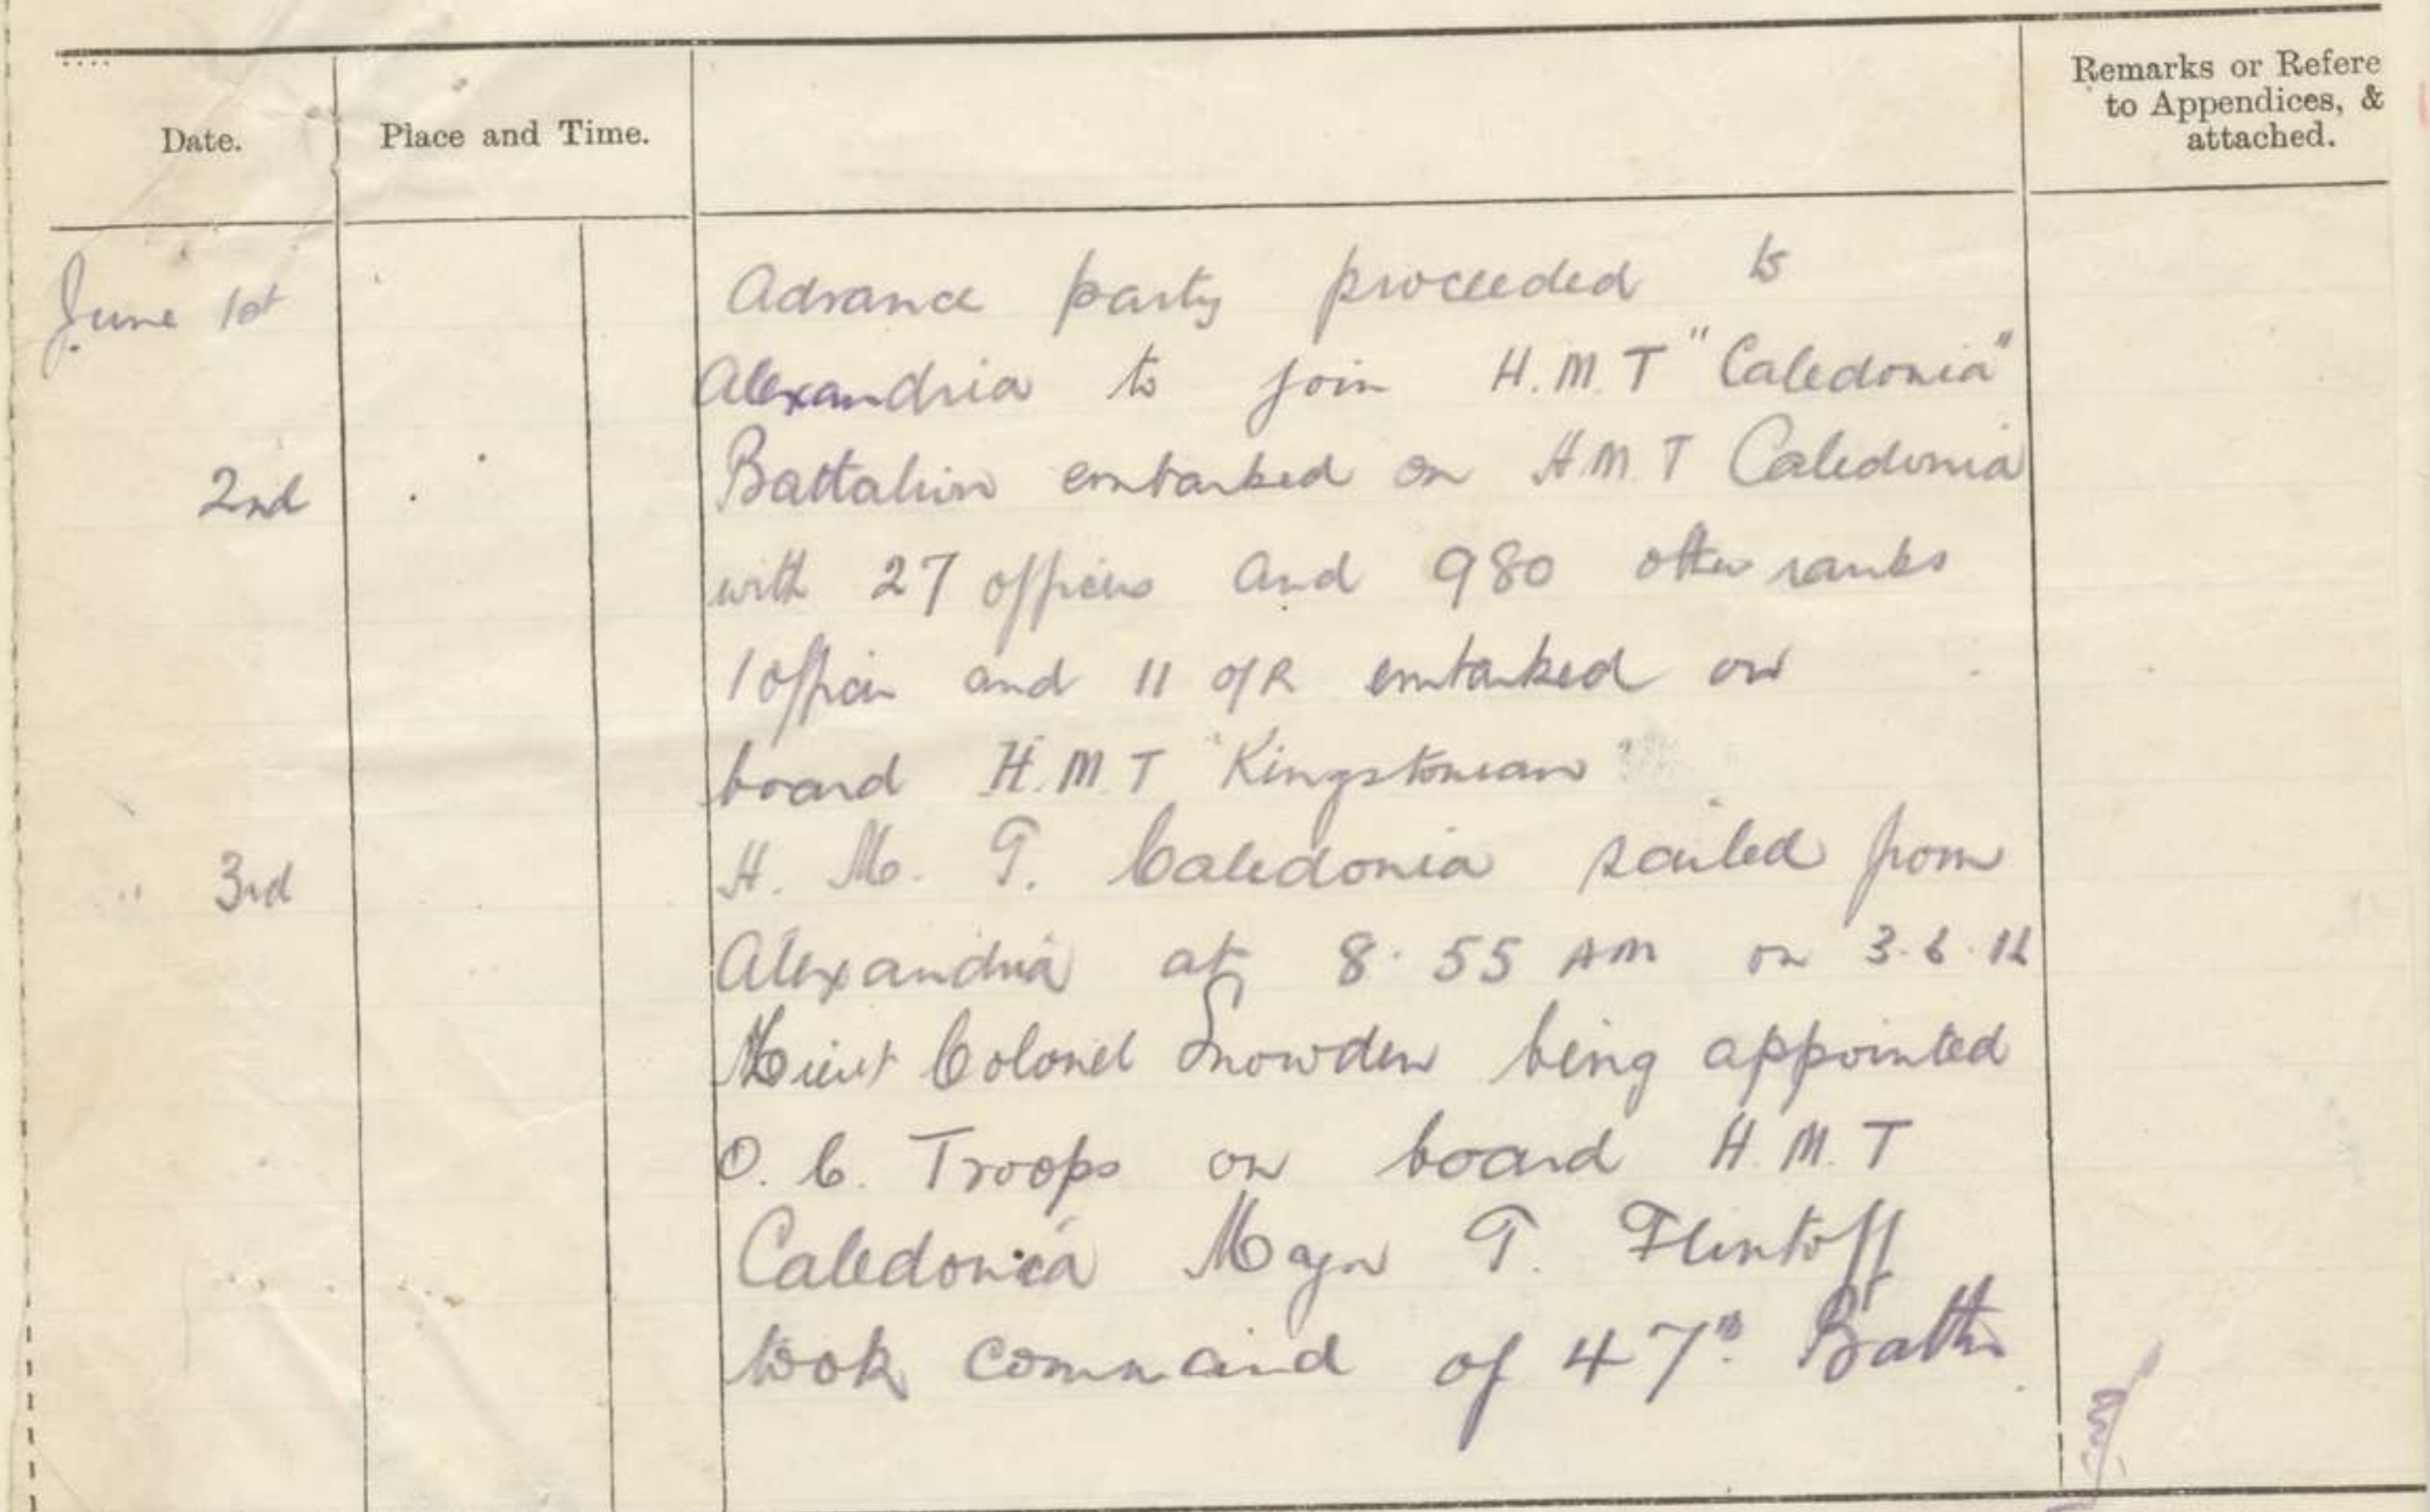 Date.
Place and Time.
Remarks or Refere
to Appendices, &
attached.
June 1st
Advance party proceeded to
Alexandria to join H.M.T "Caledonia"
2nd
Battalion embarked on H.M.T Caledonia
with 27 officers and 980 other ranks
1 officer and 11 O/R embarked on
board H.M.T "Kingstonian"
" 3rd
H. M. T. Caledonia sailed from
Alexandria at 8.55 AM on 3.6.16
Lieut Colonel Snowden being appointed
O. C. Troops on board H.M.T
Caledonia Major T. Flintoff
took command of 47th Battn